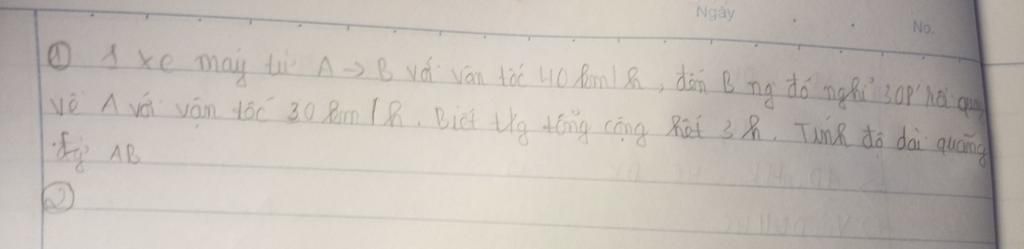 Ngày
No.
① 1 xe máy từ A → B với vận tốc 40 km/h, đến B ng đó nghỉ 30P' rồi quay
về A với vận tốc 30 km/h. Biết t/g tổng cộng hết 3h. Tính độ dài quãng
đg AB
②